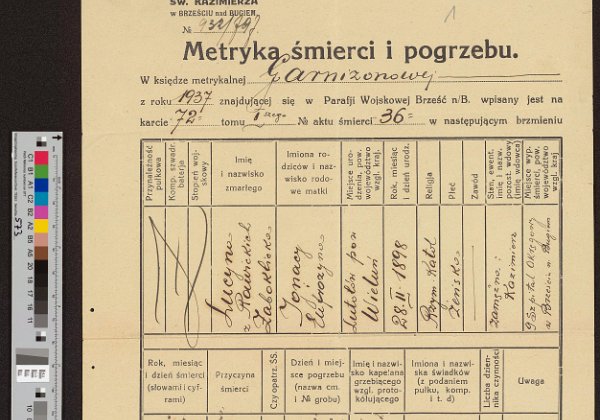 ŚW. KAZIMIERZA
w BRZEŚCIU nad BUGIEM
№ 932/797
1
Metryka śmierci i pogrzebu.
W księdze metrykalnej Garnizonowej
z roku 1937 znajdującej się w Parafji Wojskowej Brześć n/B. wpisany jest na
karcie 72 = tomu I szego № aktu śmierci 36 = w następującym brzmieniu
Przynależność pułkowa
Komp. szwadr. baterja
Stopień wojskowy
Imię i nazwisko zmarłego
Imiona rodziców i nazwisko rodowe matki
Miejsce urodzenia, pow. województwo wzgl. kraj.
Rok, miesiąc i dzień urodz.
Religja
Płeć
Zawód
Stan, ewent. imię i nazw. pozost. wdowy (imię wdowca)
Miejsce wyp. śmierci, pow. województwo wzgl. kraj
Lucyna
z
Zaboklicka
Ignacy
Lutolów pow
Wieluń
28.II.1898
Rzym Katol
żeńska
zamężna:
Kazimierz
9 Szpital Okręgowy
w Brześciu n Bugiem
Rok, miesiąc i dzień śmierci (słowami i cyframi)
Przyczyna śmierci
Czy opatrz. ŚS.
Dzień i miejsce pogrzebu (nazwa cm. i № grobu)
Imię i nazwisko kapelana grzebiącego wzgl. protokółującego
Imiona i nazwiska świadków (z podaniem pułku, komp. i t. d)
Liczba dziennika czynności
Uwaga
C1 B1 A1 C2 B2 A2 B5 A5 20 18 17 16 11
573
10